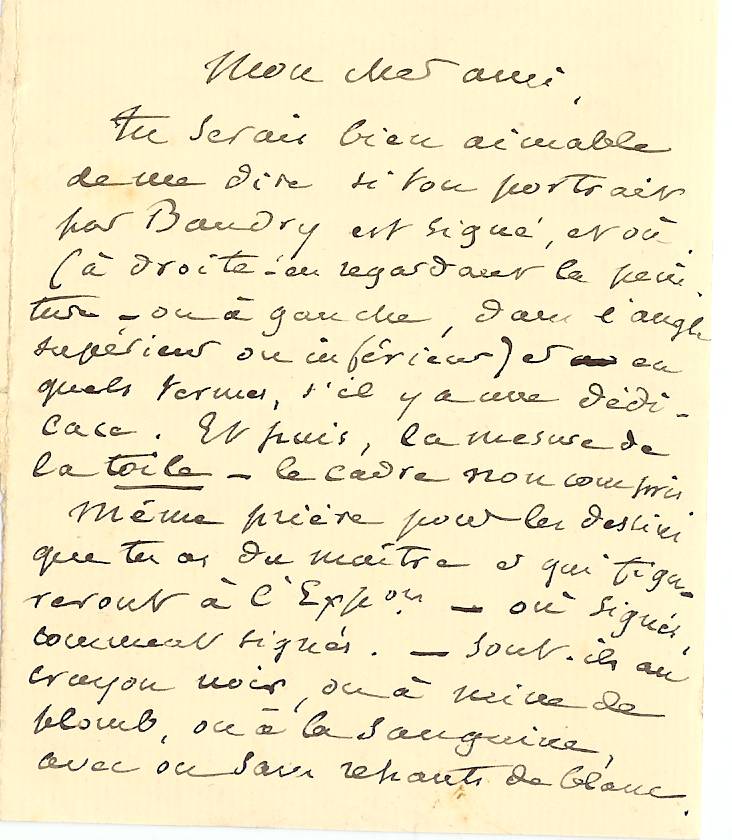 Mon cher ami,
Tu serais bien aimable
de me dire si ton portrait
par Baudry est signé, et où
(à droite - en regardant la pein-
ture - ou à gauche, dans l'angle
supérieur ou inférieur) et en
quels termes, s'il y a une dédi-
cace. Et puis, la mesure de
la toile - le cadre non compris
Même prière pour les dessins
que tu as du maître et qui figu-
reront à l'Expon — où signés,
comment signés. — Sont-ils au
crayon noir, ou à mine de
plomb, ou à la sanguine,
avec ou sans rehauts de blanc.